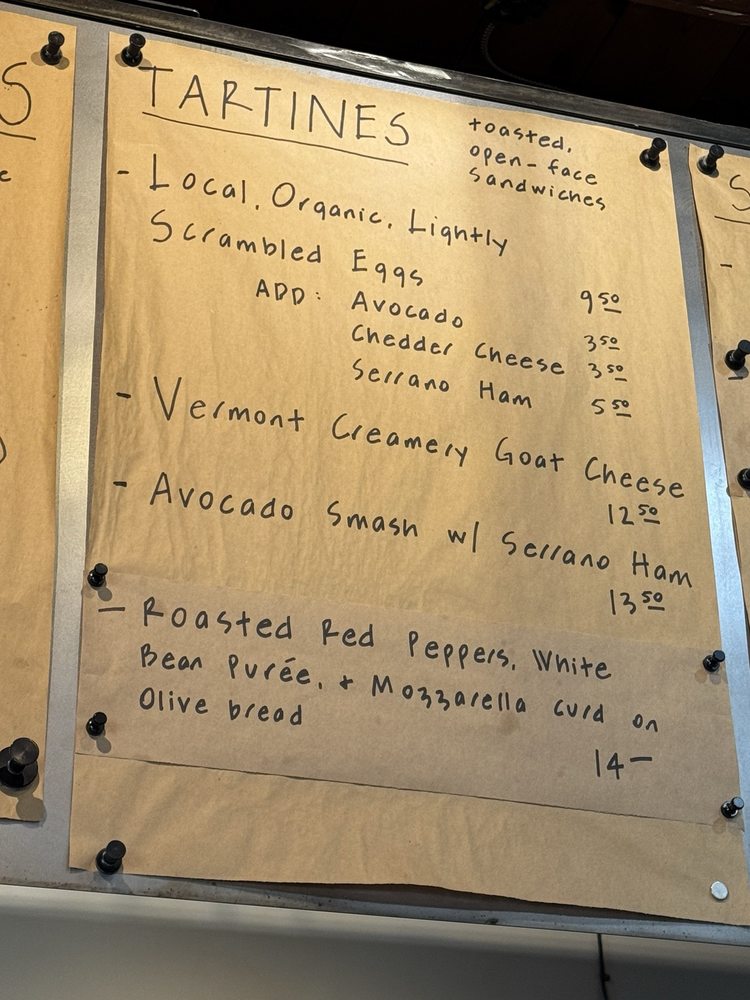 S
TARTINES
toasted,
open-face
sandwiches
- Local, Organic, Lightly
Scrambled Eggs
9 50
ADD: Avocado 3 50
Chedder Cheese 3 50
Serrano Ham 5 50
- Vermont Creamery Goat Cheese
12 50
- Avocado Smash w/ Serrano Ham
13 50
- Roasted Red Peppers, White
Bean Purée, + Mozzarella curd on
Olive bread
14 -
S